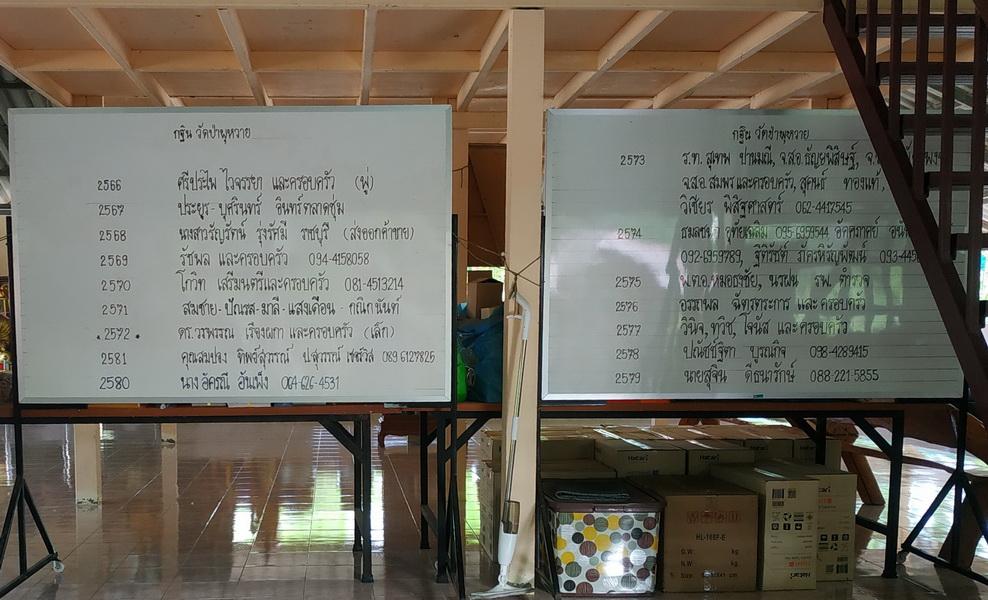 กฐิน วัดป่าพุหวาย
2566 ศรีประไพ ไวจรรยา และครอบครัว (พู่)
2567 ประยูร - บุศรินทร์ อินทร์ตลาดชุม
2568 นางสาวรัญรัตน์ รุ่งรัศมี ราชบุรี (ส่งออกค้าขาย)
2569 รัชพล และครอบครัว 094-4158058
2570 โกวิท เสรีมนตรีและครอบครัว 081-4513214
2571 สมชาย - ปัณรส - มาลี - แสงเดือน - กณิกนันท์
.2572. ดร.วรพรรณ เรืองผกา และครอบครัว (เล็ก)
2581 คุณสมปอง ทิพย์สุวรรณ์ ป.สุวรรณ์ เซอร์วิส 089 6127825
2580 นาง อัครณี อันเพ็ง 064-626-4531
กฐิน วัดป่าพุหวาย
2573 ร.ท. สุเทพ ปานมณี, จ.ส.อ. ธัญยพิสิษฐ์,
จ.ส.อ. สมพร และครอบครัว, สุคนธ์ ทองแท้,
วิเชียร พิสิฐศาสตร์ 062-4417545
2574 ธมลชนม์ อุทัยเฉลิม 095-6959544 อัคคราศัย
092-6959789, ฐิติรัชต์ ภัครหิรัญพัฒน์
2575 พ.ต.อ.หมอธงชัย, นรฝน รพ. ตำรวจ
2576 อรรถพล ฉัตรตระการ และ ครอบครัว
2577 วินิจ, ทวิช, โจนัส และ ครอบครัว
2578 ปณัชช์ฐิตา บูรณกิจ 098-4289415
2579 นายสุจิน ดีธนารักษ์ 088-221-5855
Hatari
Hatari
Hatari
HL-168F-E
G.W: kg
N.W: kg
Size: cm
Hatari